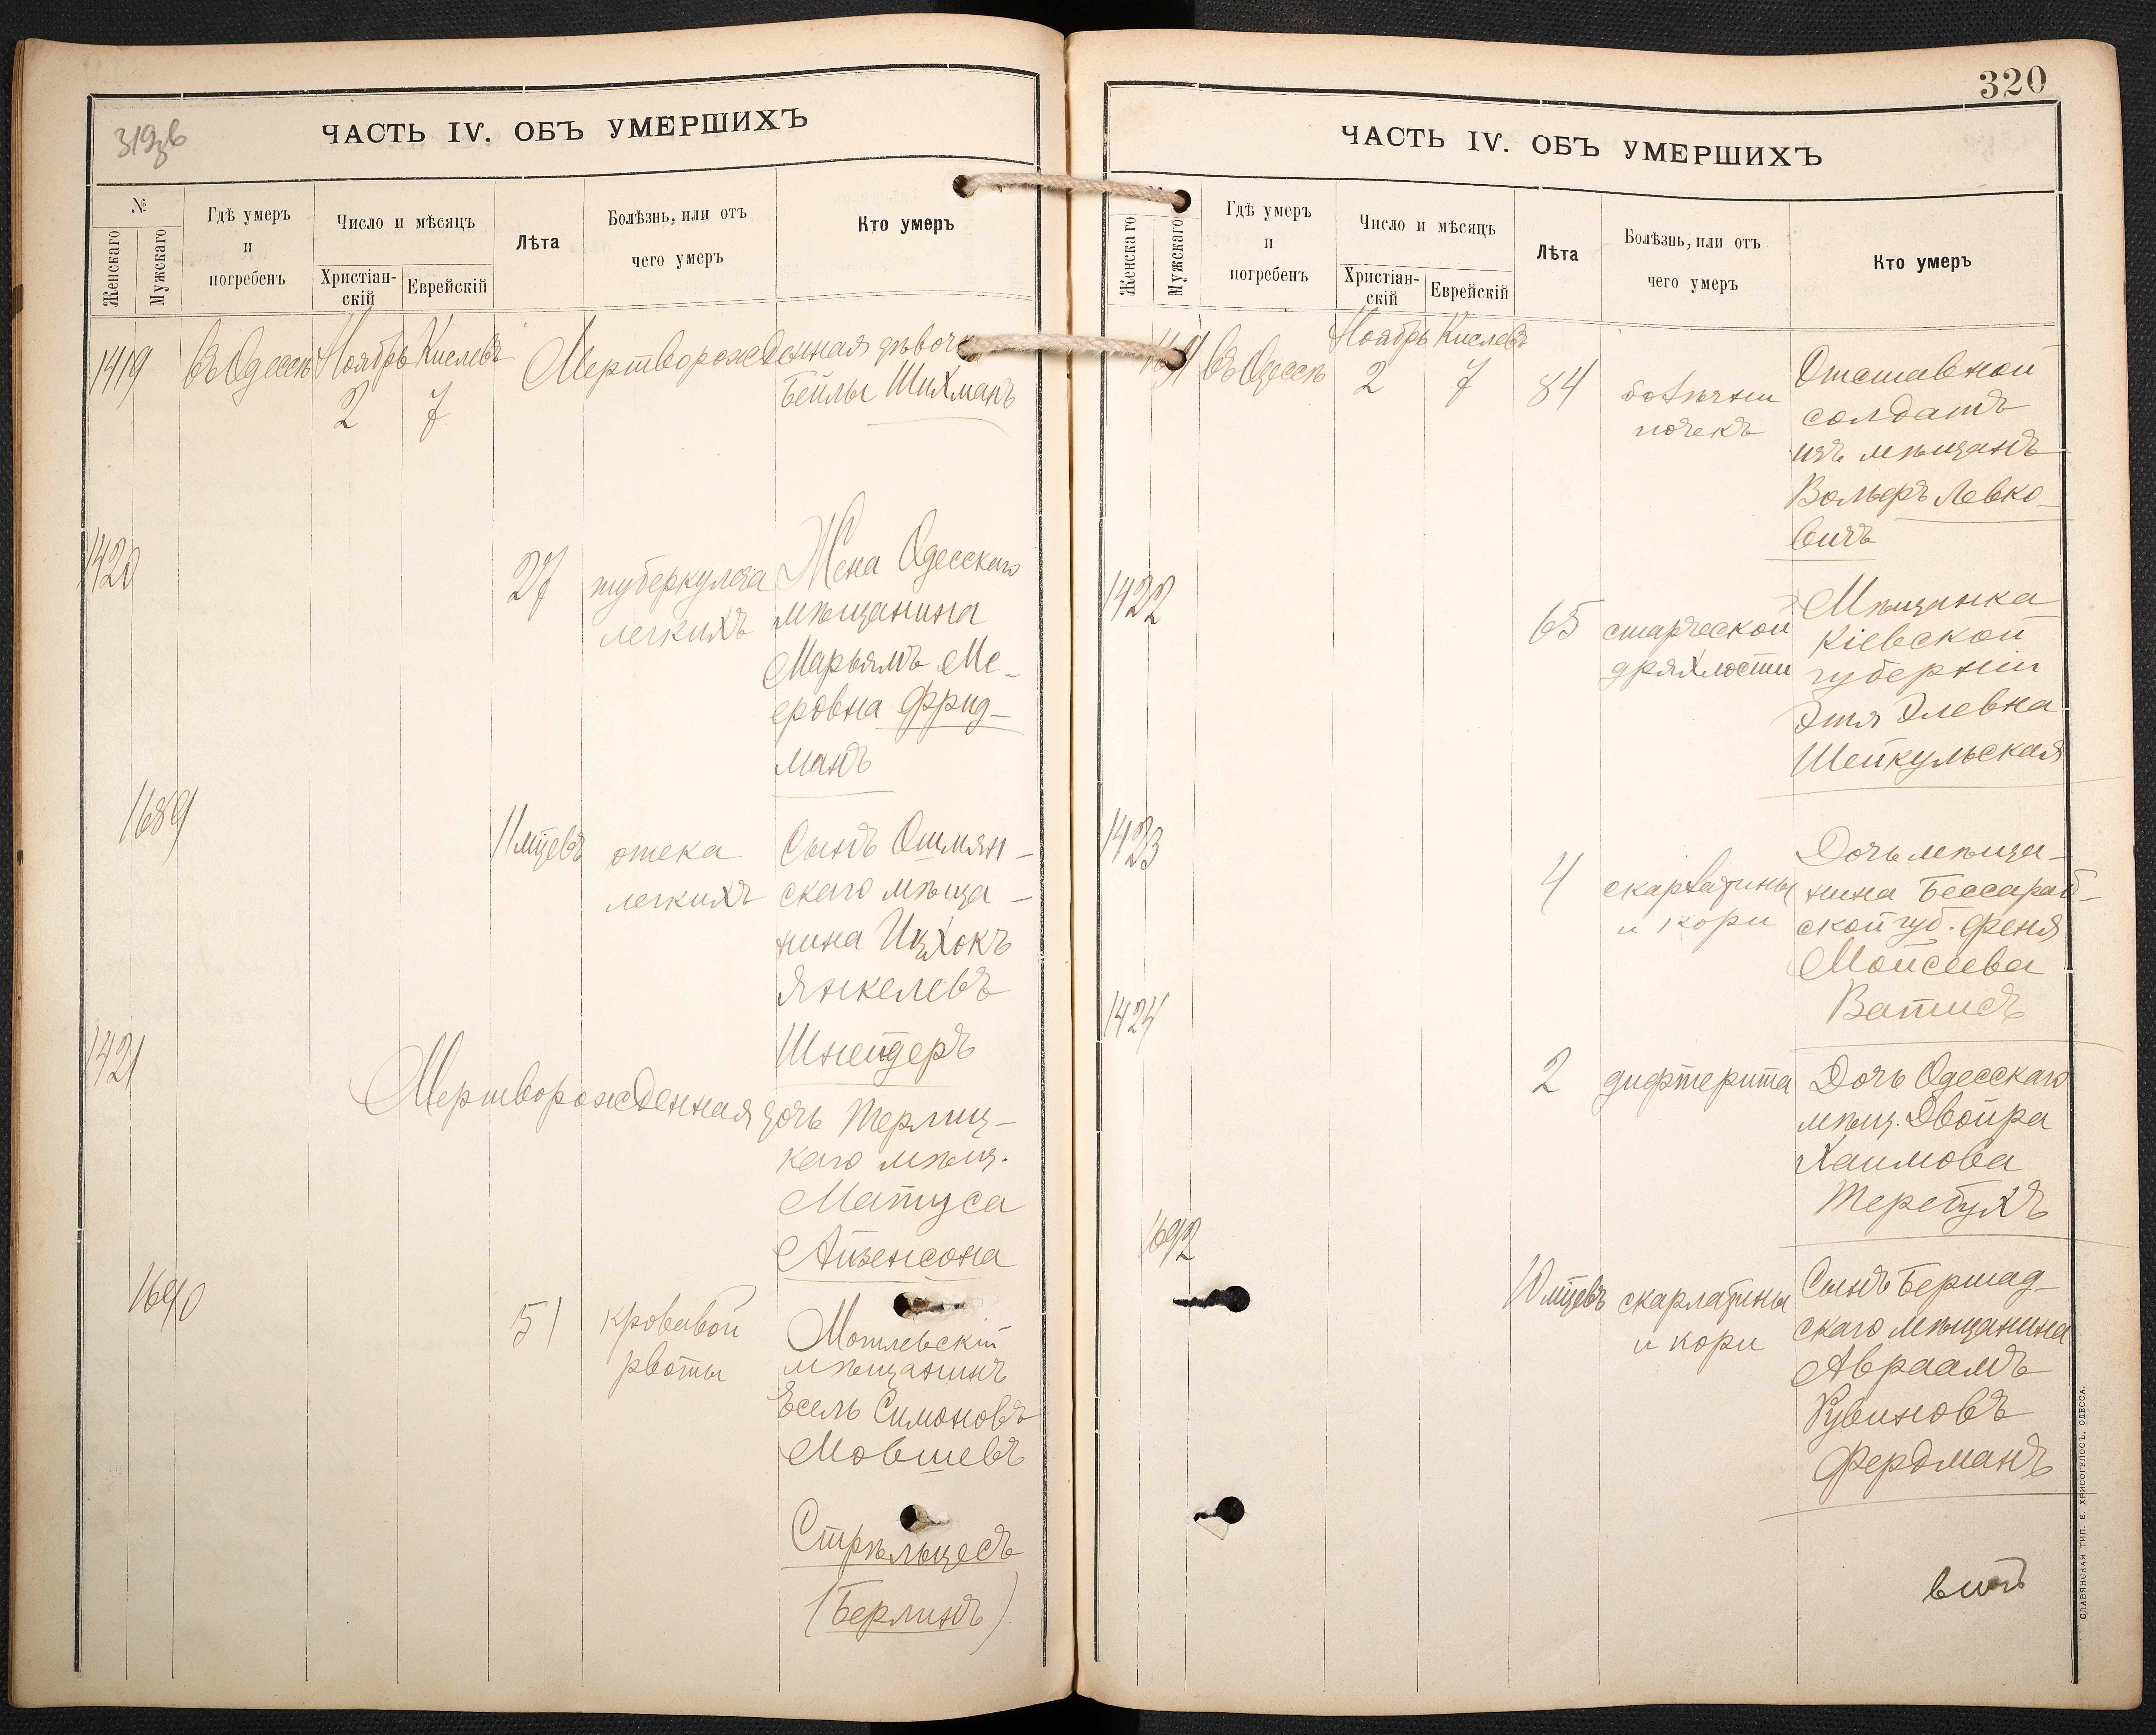 319об
ЧАСТЬ IV. ОБЪ УМЕРШИХЪ
№
Женскаго
Мужскаго
Гдѣ умеръ
и
погребенъ
Число и мѣсяцъ
Христіан-
скій
Еврейскій
Лѣта
Болѣзнь, или отъ
чего умеръ
Кто умеръ
1419 Въ Одессѣ Ноябрь Кислевъ Мертворожденная дѣвоч
2 7 Бейлы Шихманъ
1420
27 туберкулеза Жена Одесскаго
легкихъ мѣщанина
Марьямъ Ме-
еровна Фрид-
манъ
1689
11 мцевъ отека Сынъ Ошмян-
легкихъ скаго мѣща-
нина Ицхокъ
Янкелевъ
Шнейдеръ
1421
Мертворожденная дочь Терлиц-
каго мѣщ.
Матуса
Айзенсона
1690
51 кровавой Могилевскій
рвоты мѣщанинъ
Есель Симоновъ
Мовшевъ
Стрѣльцесъ
(Берлинъ)
320
ЧАСТЬ IV. ОБЪ УМЕРШИХЪ
Женскаго
Мужскаго
Гдѣ умеръ
и
погребенъ
Число и мѣсяцъ
Христіан-
скій
Еврейскій
Лѣта
Болѣзнь, или отъ
чего умеръ
Кто умеръ
1691 Въ Одессѣ Ноябрь Кислевъ
2 7 84 болѣзни Отставной
почекъ солдатъ
изъ мѣщанъ
Вольфъ Левко-
вичъ
1422
65 старческой Мѣщанка
дряхлости Кіевской
губерніи
Этя Элевна
Шейкульская
1423
4 скарлатины Дочь мѣща-
и кори нина Бессараб-
ской губ. Феня
Мойсеева
Ватисъ
1424
2 дифтерита Дочь Одесскаго
мѣщ. Двойра
Хаимова
Теребухъ
1692
10 мцевъ скарлатины Сынъ Бершад-
и кори скаго мѣщанина
Авраамъ
Рувиновъ
Фердманъ
СЛАВЯНСКАЯ ТИП. Е. ХРИСОГЕЛОСЪ, ОДЕССА.